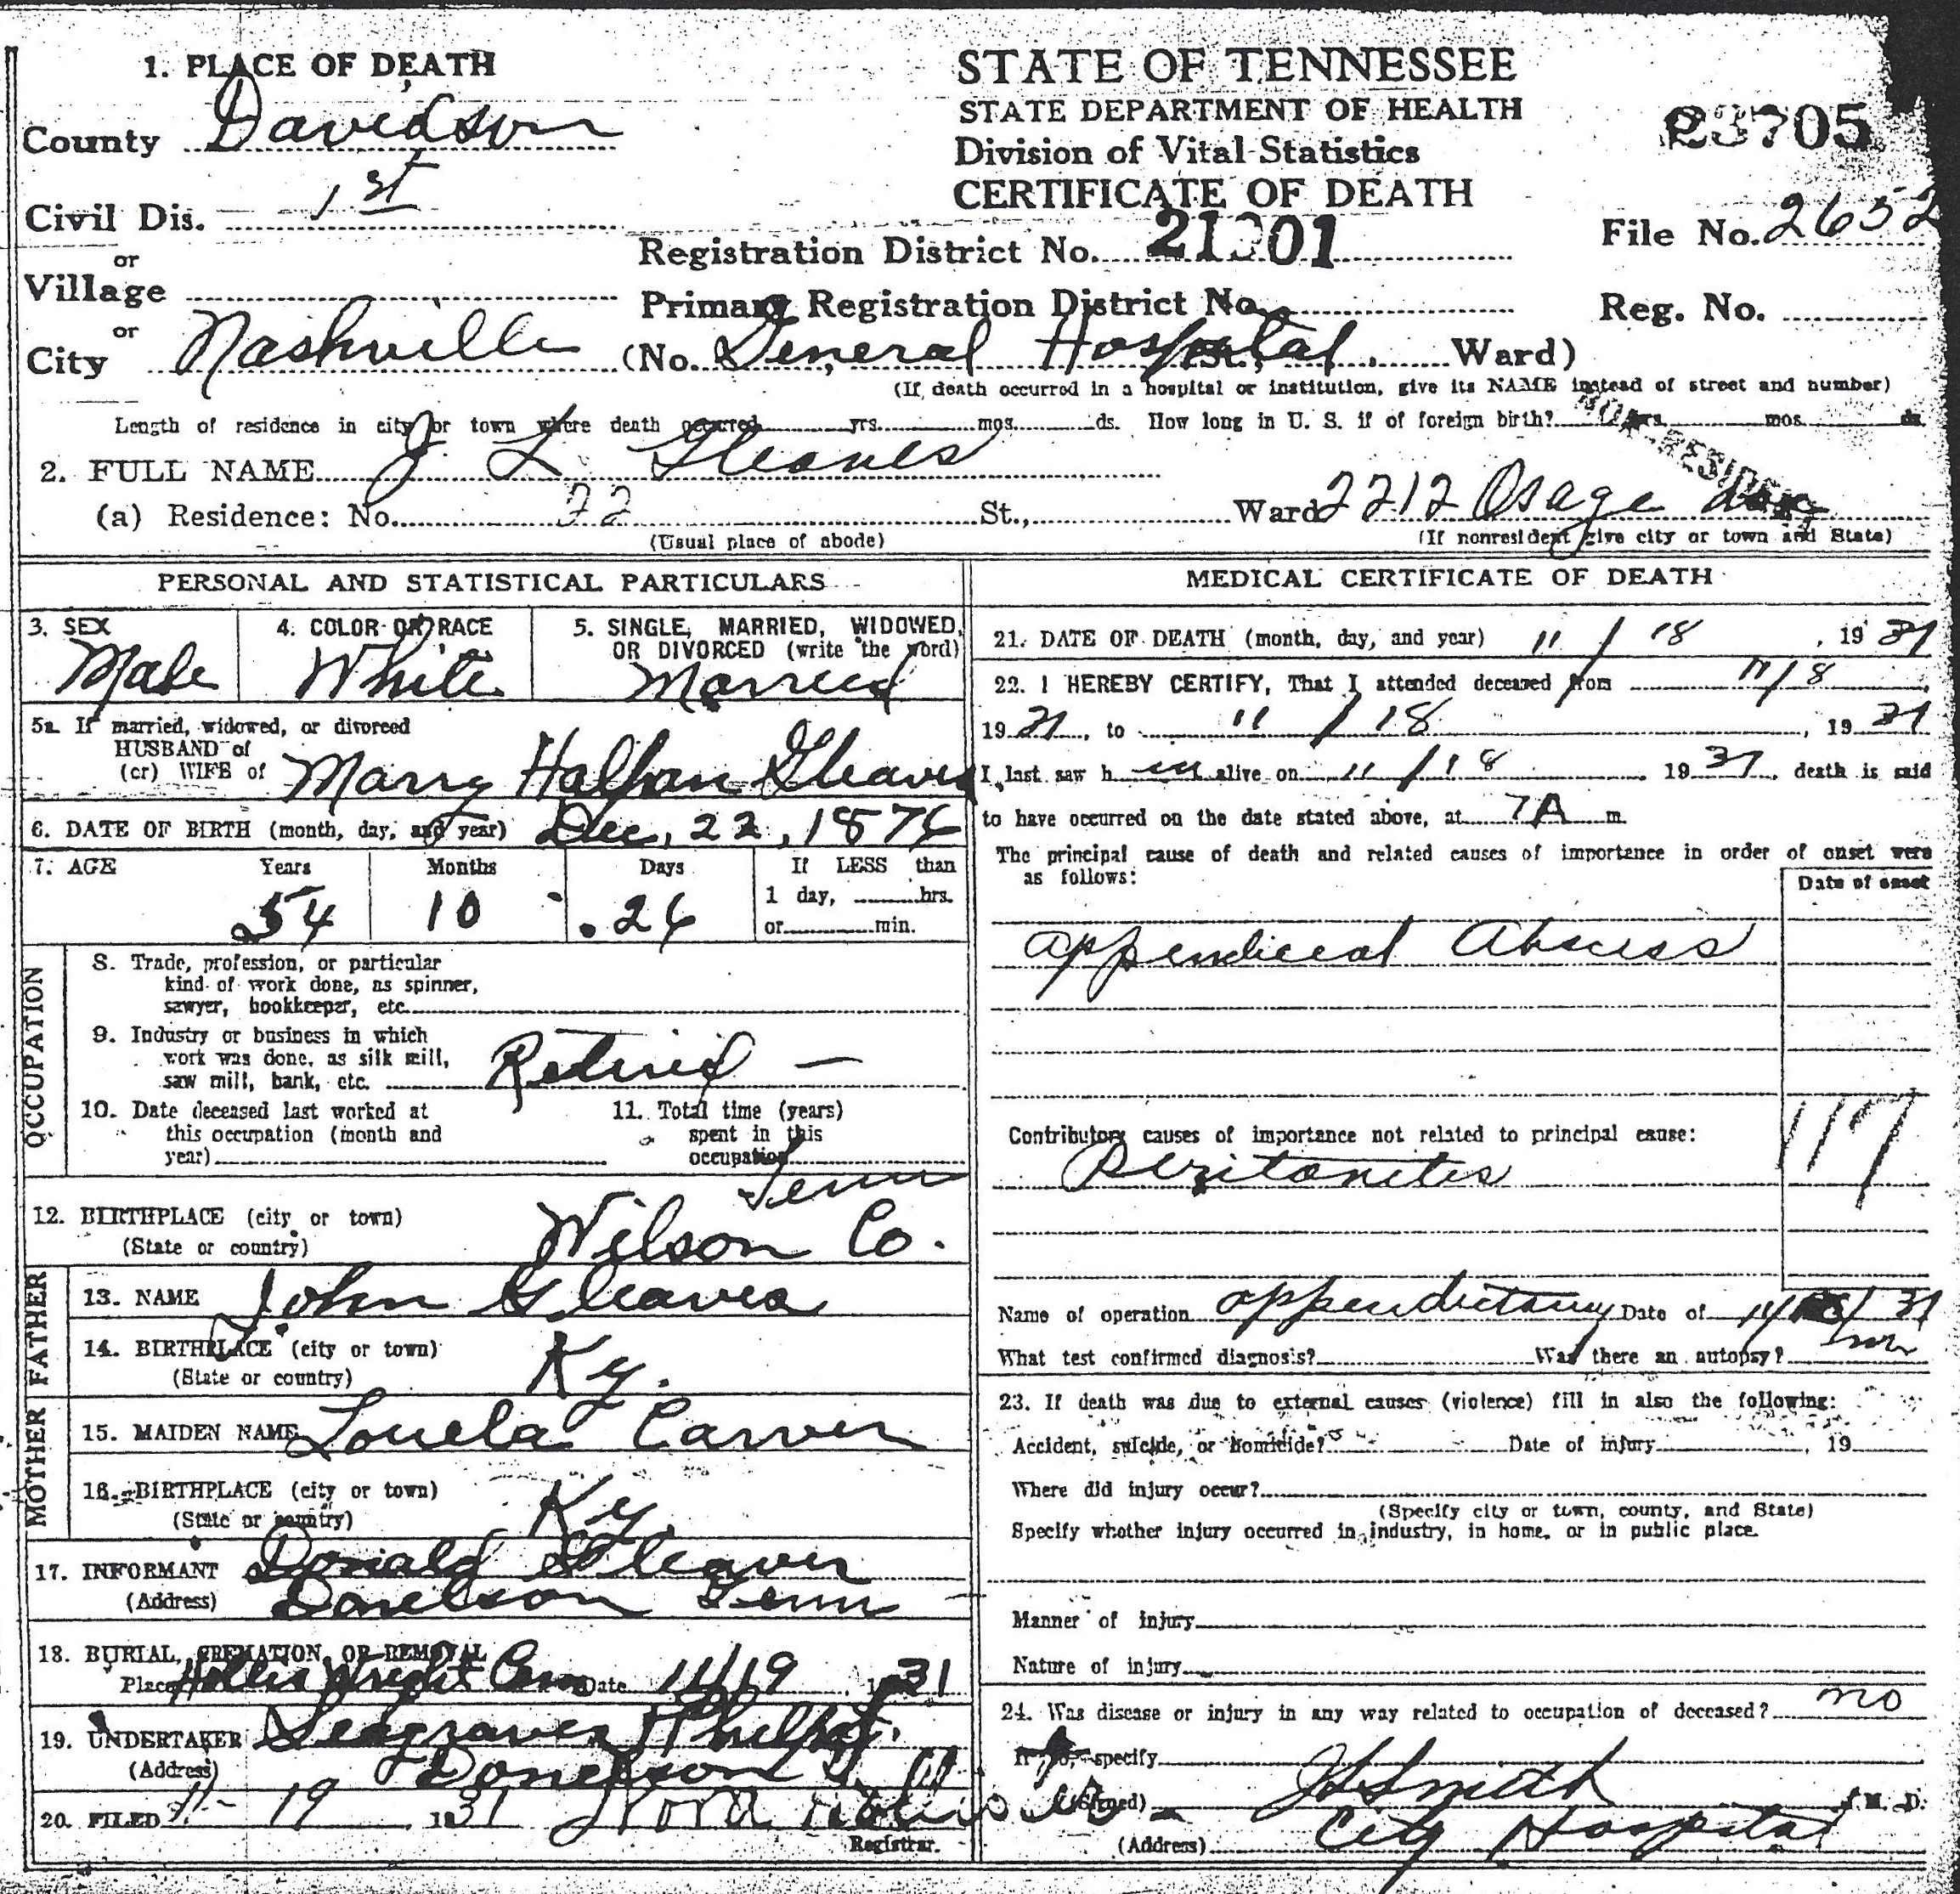 1. PLACE OF DEATH
County Davidson
Civil Dis. 1st
or
Village
or
City Nashville (No. General Hospital St., Ward)
(If death occurred in a hospital or institution, give its NAME instead of street and number)
STATE OF TENNESSEE
STATE DEPARTMENT OF HEALTH
Division of Vital Statistics
CERTIFICATE OF DEATH
Registration District No. 21001
Primary Registration District No.
23705
File No. 2652
Reg. No.
Length of residence in city or town where death occurred yrs. mos. ds. How long in U. S. if of foreign birth? yrs. mos. ds.
NON-RESIDENT
2. FULL NAME J L Gleaves
(a) Residence: No. 22 St., Ward 2212 Osage
(Usual place of abode) (If nonresident give city or town and State)
PERSONAL AND STATISTICAL PARTICULARS
3. SEX Male
4. COLOR OR RACE White
5. SINGLE, MARRIED, WIDOWED, OR DIVORCED (write the word) Married
5a. If married, widowed, or divorced
HUSBAND of
(or) WIFE of Mary Gleaves
6. DATE OF BIRTH (month, day, and year) Dec, 22, 1876
7. AGE Years Months Days If LESS than
54 10 26 1 day, hrs.
or min.
OCCUPATION
8. Trade, profession, or particular
kind of work done, as spinner,
sawyer, bookkeeper, etc.
9. Industry or business in which
work was done, as silk mill,
saw mill, bank, etc. Retired —
10. Date deceased last worked at
this occupation (month and
year)
11. Total time (years)
spent in this
occupation
12. BIRTHPLACE (city or town) Tenn
(State or country) Wilson Co.
FATHER
13. NAME John Gleaves
14. BIRTHPLACE (city or town)
(State or country) Ky.
MOTHER
15. MAIDEN NAME Louela Carver
16. BIRTHPLACE (city or town)
(State or country) Ky.
17. INFORMANT Donald Gleaves
(Address) Donelson Tenn
18. BURIAL, CREMATION, OR REMOVAL
Place Wright Cem Date 11/19 1931
19. UNDERTAKER Seagraves Phillips
(Address) Donelson
20. FILED 11- 19 1931 Nora
Registrar.
MEDICAL CERTIFICATE OF DEATH
21. DATE OF DEATH (month, day, and year) 11 / 18, 1931
22. I HEREBY CERTIFY, That I attended deceased from 11/8,
1931, to 11 / 18, 1931
I last saw h im alive on 11 / 18, 1931, death is said
to have occurred on the date stated above, at 7A m.
The principal cause of death and related causes of importance in order of onset were
as follows:
Date of onset
appendiceal Abscess
Contributory causes of importance not related to principal cause:
117
Peritonitis
Name of operation appendectomy Date of 11/ / 31
What test confirmed diagnosis? Was there an autopsy? no
23. If death was due to external causes (violence) fill in also the following:
Accident, suicide, or homicide? Date of injury , 19
Where did injury occur?
(Specify city or town, county, and State)
Specify whether injury occurred in industry, in home, or in public place.
Manner of injury
Nature of injury
24. Was disease or injury in any way related to occupation of deceased? no
If so, specify
(Signed) Smith M. D.
(Address) City Hospital